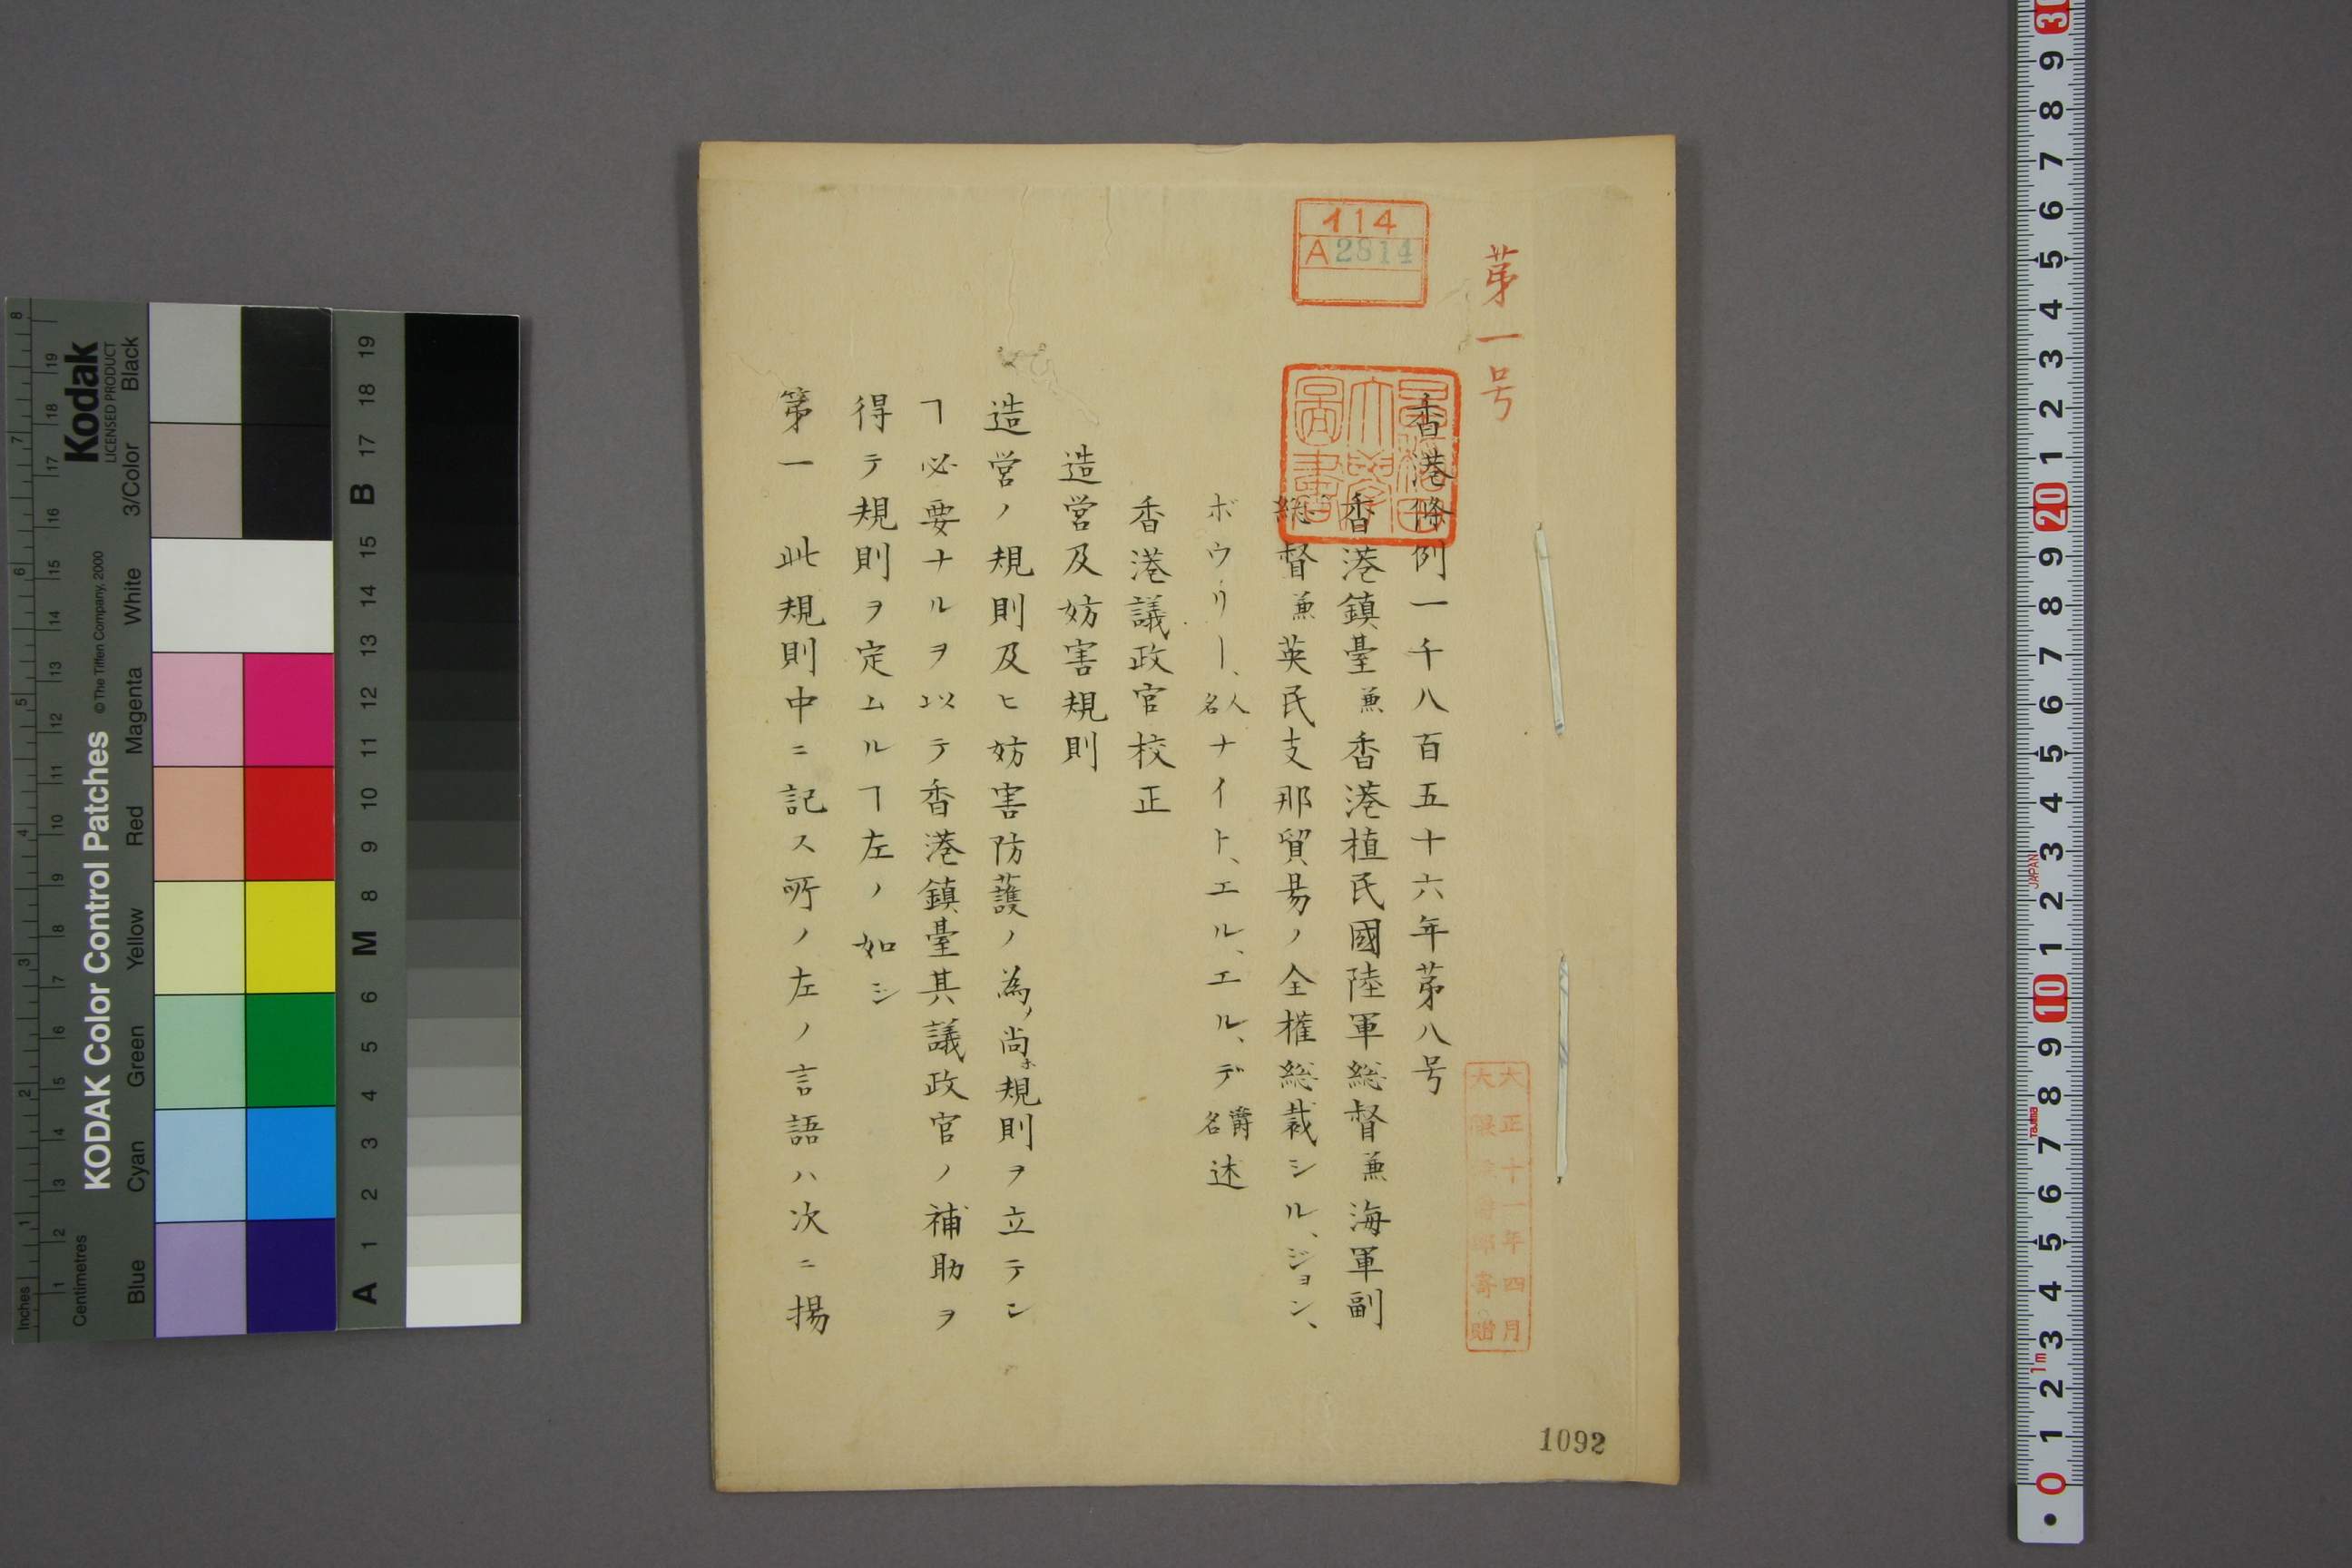 第一号
香港條例一千八百五十六年第八号
香港鎮臺兼香港植民國陸軍総督兼海軍副
総督兼英民支那貿易ノ全権総裁シル、ジョン、
ボウリー、人名ナイト、エル、エル、デ爵名述
香港議政官校正
造営及妨害規則
造営ノ規則及ヒ妨害防護ノ為ノ尚ホ規則ヲ立テン
ヿ必要ナルヲ以テ香港鎮臺其議政官ノ補助ヲ
得テ規則ヲ定ムルヿ左ノ如シ
第一 此規則中ニ記ス所ノ左ノ言語ハ次ニ揚
114
A2814
早稲田大學圖書
大正十一年四月
大隈侯爵邸寄贈
1092
KODAK Color Control Patches
© The Tiffen Company, 2000
Kodak
LICENSED PRODUCT
Inches 1 2 3 4 5 6 7 8
Centimetres 1 2 3 4 5 6 7 8 9 10 11 12 13 14 15 16 17 18 19
Blue Cyan Green Yellow Red Magenta White 3/Color Black
A 1 2 3 4 5 6 M 8 9 10 11 12 13 14 15 B 17 18 19
0 1 2 3 4 5 6 7 8 9 10 1 2 3 4 5 6 7 8 9 20 1 2 3 4 5 6 7 8 9 30
1m
Tajima
JAPAN